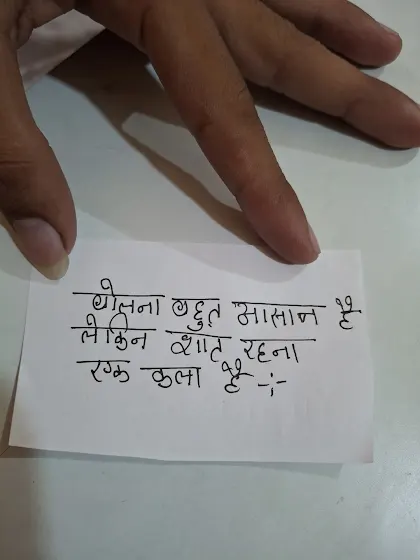 बोलना बहुत आसान है
लेकिन शांत रहना
एक कला है -:-